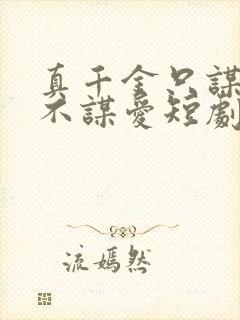 真千金只謀
不謀愛短劇
流嫣然